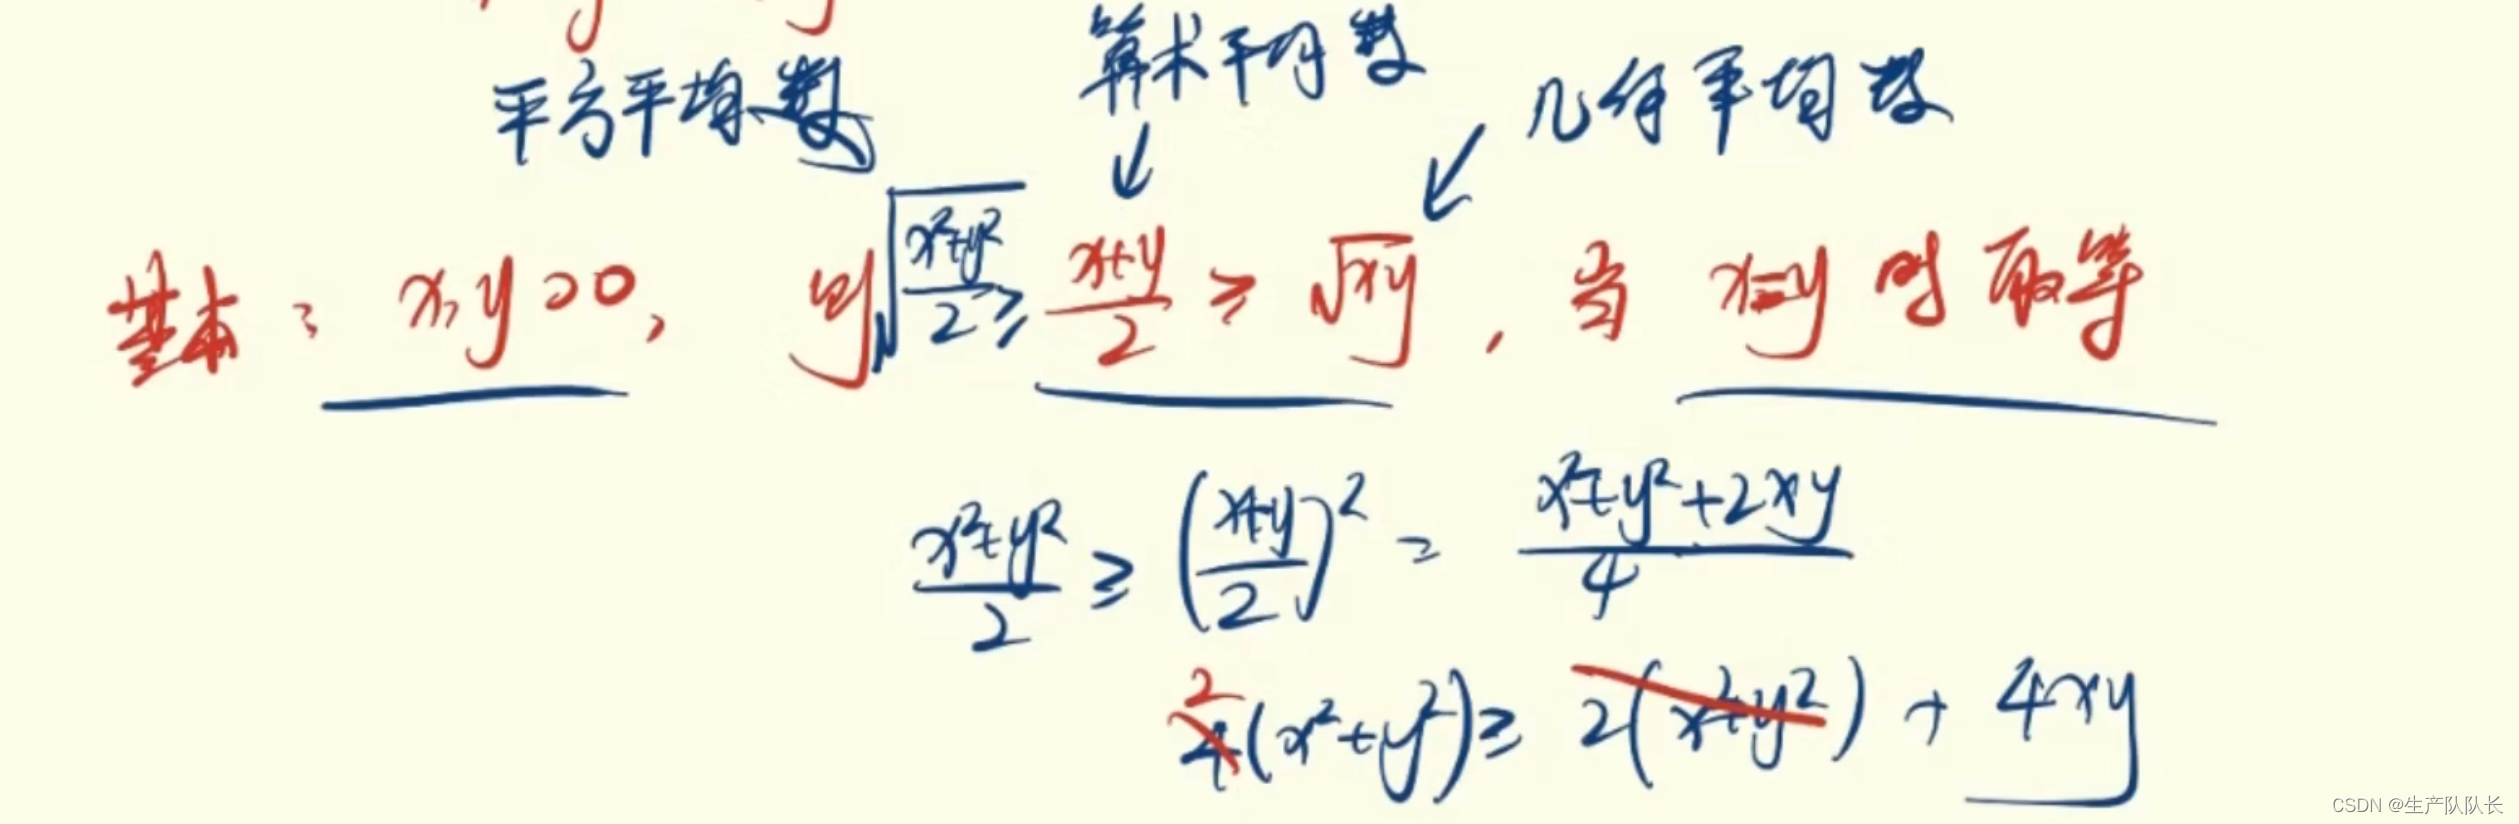 平方平均数 算术平均数 几何平均数
基本: x,y>0, 则 √((x²+y²)/2) ≥ (x+y)/2 ≥ √xy , 当 x=y 时取等
(x²+y²)/2 ≥ ((x+y)/2)² = (x²+y²+2xy)/4
2
4(x²+y²) ≥ 2(x²+y²) + 4xy
CSDN @生产队队长